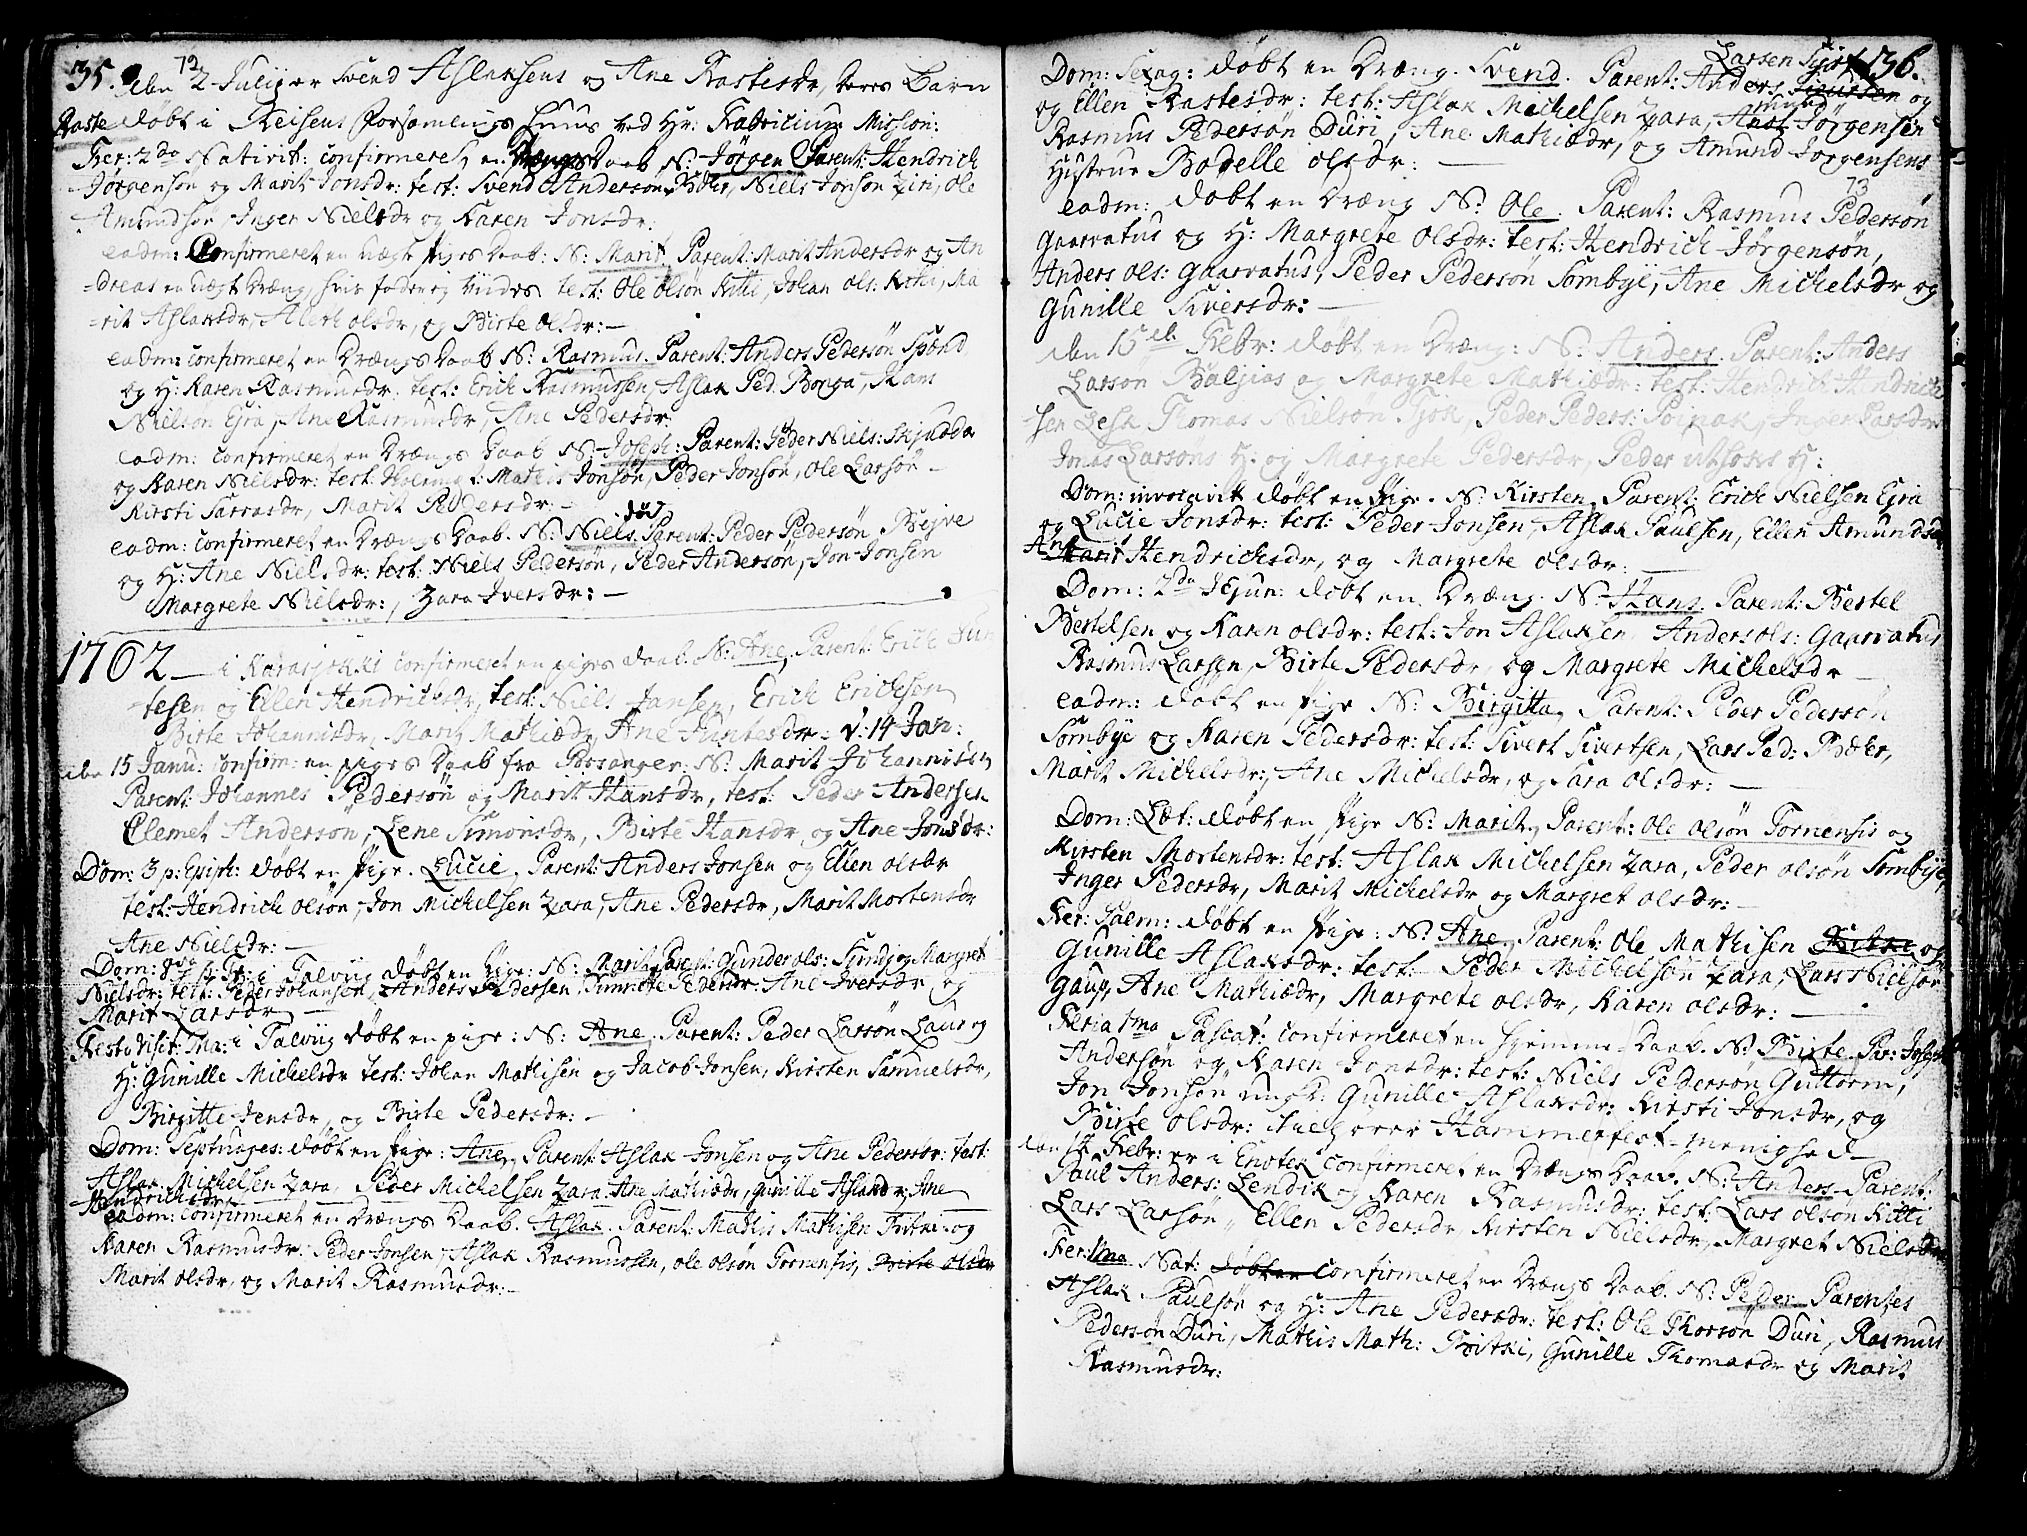 35.
72
den 2 Julij er Svend Aslaksens og Ane Rastesdr, deres Barn
Raste døbt i Reisens Forsamlings Huus ved Hr: Fabricius Mission:
Fer: 2da Nativit: confirmeret en Drængs Daab N: Jørgen Parent: Hendrich
Jørgensøn og Marit Jonsdr: test: Svend Andersøn, Niels Jonsøn Ziri, Ole
Amundsøn, Inger Nielsdr og Karen Jonsdr:
eadm: Confirmeret en uægte Piges Daab: N: Marit, Parent: Marit Andersdr og An
dreas en uægt Dræng, hvis fader ej vides test: Ole Olsøn Kitti, Johan Ols: Ma
rit Aslaksdr, olsdr, og Birte olsdr: —
eadm: confirmeret en Drængs Daab N: Rasmus. Parent: Anders Pedersøn Spønd
og H: Karen Rasmusdr: test: Erich Rasmussen, Aslak Ped. Bonga, Hans
Nielsøn Ejra, Ane Rasmusdr, Ane Pedersdr:
eadm: confirmeret en Drængs Daab N: Joseph: Parent: Peder Niels: Skjudda
og Karen Nielsdr: test: Mathis Jonsøn, Peder Jonsøn, Ole Larsøn –
Kirsti Sarrasdr, Marit Pedersdr: –
død
eadm: confirmeret en Drængs Daab. N: Niels. Parent: Peder Pedersøn Bejve
og H: Ane Nielsdr: test: Niels Pedersøn, Peder Andersøn, Jon Jonsen
Margrete Nielsdr:, Zara Iversdr: —
1762 — i Karasjokki confirmeret en piges daab. N: Ane, Parent: Erich Jun
tesen og Ellen Hendrichsdr, test: Niels Jansen, Erich Erichsen
Birte Johannisdr, Marit Mathisdr, Ane Juntesdr – d: 14 Jan:
den 15 Janu: confirm: en piges Daab fra Porsanger. N: Marit Johannisdr
Parent: Johannes Pedersøn og Marit Hansdr, test: Peder Andersen
Clemet Andersøn, Lene Simonsdr, Birte Hansdr og Ane Jonsdr:
Dom: 3 p: Epiph: døbt en Pige. Lucie, Parent: Anders Jonsen og Ellen olsdr
test: Hendrich olsøn, Jon Michelsen Zara, Ane Pedersdr, Marit Mortensdr
Ane Nielsdr: —
Dom: i Talviig døbt en Pige: N: Marit, Parent: Gunder ols: og Margret
Nielsdr: test: Peder Johansen, Anders Pedersen, Pedersdr: Ane Iversdr og
Marit Larsdr —
Festo Visit: Ma: i Talviig døbt en pige: N: Ane, Parent: Peder Larsøn Laur og
H: Gunille Michelsdr test: Johan Mathisen og Jacob Jonsen, Kirsten Samuelsdr,
Birgitte Jensdr, og Birte Pedersdr: –
Dom: Septuages: døbt en Pige: Ane, Parent: Aslak Jonsen og Ane Pedersdr: test:
Aslak Michelsen Zara, Peder Michelsen Zara, Ane Mathisdr, Gunille Aslaxdr, Ane
Hendrichsdr
eadm: confirmeret en Drængs Daab. Aslak. Parent: Mathis Mathisen og
Karen Rasmusdr: Peder Jonsen, Aslak Rasmussen, ole olsøn Tornensis, Birte olsdr
Marit olsdr, og Marit Rasmusdr: –
136.
Larsen
Dom: Sexag: døbt en Dræng. Svend. Parent: Anders og
og Ellen Rastesdr: test: Aslak Michelsen Zara, Jørgensen
Rasmus Pedersøn Duri, Ane Mathisdr, og Amund Jørgensens
Hustrue Bodelle olsdr: —
73
eadm: døbt en Dræng N: Ole. Parent: Rasmus Pedersøn
Gaarvatus og H: Margrete olsdr: test: Hendrich Jørgensøn,
Anders ols: Gaarvatus, Peder Pedersøn Sombye, Ane Michelsdr og
Gunille Siversdr: —
den 15de Febr: døbt en Dræng: N: Anders. Parent: Anders
Larsøn Baljias og Margrete Mathisdr: test: Hendrich Hendrich
sen Lesk Thomas Nielsøn Tjok, Peder Peders: Poinak, Inger Larsdr
Jonas Larsøns H. og Margrete Pedersdr, Peder H:
Dom: invocavit døbt en Pige. N: Kirsten, Parent: Erich Nielsen Ejra
og Lucie Jonsdr: test: Peder Jonsen, Aslak Paulsen, Ellen Amundsdr
Ane Marit Hendrichsdr, og Margrete olsdr: —
Dom: 2da Jejun: døbt en Dræng. N: Hans. Parent: Bertel
Bertelsen og Karen olsdr: test: Jon Aslaksen, Anders ols: Gaarvatus
Rasmus Larsen, Birte Pedersdr, og Margrete Michelsdr —
eadm: døbt en pige N: Birgitta, Parent: Peder Pedersøn
Sombye og Karen Pedersdr: test: Sivert Sivertsen, Lars Ped: Bæhr,
Marit Michelsdr:, Ane Michelsdr, og Sara olsdr: —
Dom: Læt: døbt en Pige N: Marit, Parent: Ole olsøn Tornensis og
Kirsten Mortensdr: test: Aslak Michelsen Zara, Peder olsøn Sombye,
Inger Pedersdr, Marit Michelsdr og Margret olsdr: —
Fer: Palm: døbt en Pige: N: Ane, Parent: Ole Mathisen og
Gunille Aslaksdr: test: Peder Michelsøn Zara, Lars Nielsøn
Gaup, Ane Mathisdr, Margrete olsdr, Karen olsdr: —
Feria 1ma Pascat: confirmeret en hiemme-Daab. N: Birte. Par: Joseph
Andersøn og Karen Jonsdr: test: Niels Pedersøn Guttorm,
Jon Jonsøn ungk: Gunille Aslaksdr: Kirsti Jonsdr, og
Birte olsdr: Hammerfest-menighed
den 14 Febr: er i Enotek confirmeret en Drængs Daab. N: Anders Parent:
Paul Anders: Lendik og Karen Rasmusdr: test: Lars olsøn Kitti
Lars Larsøn, Ellen Pedersdr, Kirsten Nielsdr, Margret Nielsdr
Fer: 1ma Nat: døbt en confirmeret en Drængs Daab. N: Peder Parentes
Aslak Paulsøn og H: Ane Pedersdr: test: Ole Thorsøn Duri, Rasmus
Pedersøn Duri, Mathis Math: Britski, Gunille Thomasdr og Marit
Rasmusdr: